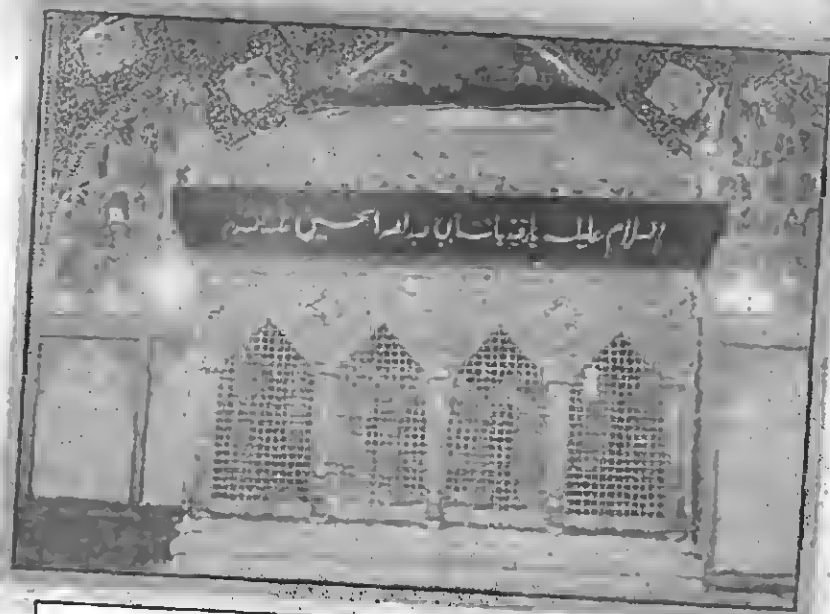 السلام عليك يا رقية بنت أبي عبدالله الحسين عليه السلام